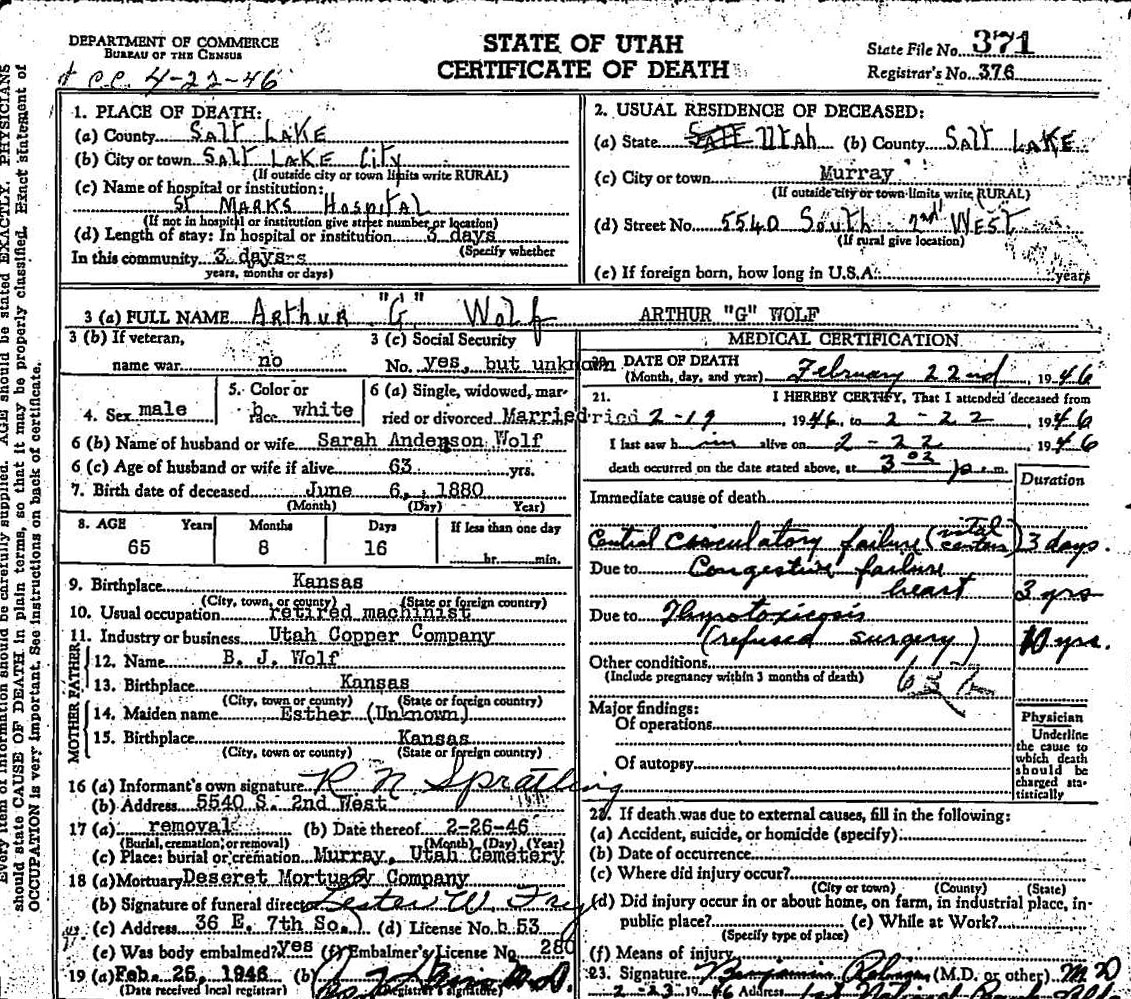 DEPARTMENT OF COMMERCE
BUREAU OF THE CENSUS
c.c. 4-22-46
STATE OF UTAH
CERTIFICATE OF DEATH
State File No. 371
Registrar's No. 376
Every item of information should be carefully supplied. AGE should be stated EXACTLY. PHYSICIANS
should state CAUSE OF DEATH in plain terms, so that it may be properly classified. Exact statement of
OCCUPATION is very important. See instructions on back of certificate.
1. PLACE OF DEATH:
(a) County SALT LAKE
(b) City or town SALT LAKE City
(If outside city or town limits write RURAL)
(c) Name of hospital or institution:
St MARKS HospitAL
(If not in hospital or institution give street number or location)
(d) Length of stay: In hospital or institution 3 days
(Specify whether
In this community 3 days
years, months or days)
2. USUAL RESIDENCE OF DECEASED:
(a) State Utah (b) County SALT LAKE
(c) City or town Murray
(If outside city or town limits write RURAL)
(d) Street No. 5540 South 2nd WEST
(If rural give location)
(e) If foreign born, how long in U.S.A. years
3 (a) FULL NAME Arthur "G" Wolf ARTHUR "G" WOLF
3 (b) If veteran,
name war no
3 (c) Social Security
No. yes, but unknown
4. Sex male
5. Color or
race white
6 (a) Single, widowed, mar-
ried or divorced Married
6 (b) Name of husband or wife Sarah Anderson Wolf
6 (c) Age of husband or wife if alive 63 yrs.
7. Birth date of deceased June 6, 1880
(Month) (Day) (Year)
8. AGE Years Months Days If less than one day
65 8 16 hr. min.
9. Birthplace Kansas
(City, town, or county) (State or foreign country)
10. Usual occupation retired machinist
11. Industry or business Utah Copper Company
FATHER
12. Name B. J. Wolf
13. Birthplace Kansas
(City, town or county) (State or foreign country)
MOTHER
14. Maiden name Esther (Unknown)
15. Birthplace Kansas
(City, town or county) (State or foreign country)
16 (a) Informant's own signature R N Spratling
(b) Address 5540 S. 2nd West
17 (a) removal (b) Date thereof 2-26-46
(Burial, cremation, or removal) (Month) (Day) (Year)
(c) Place: burial or cremation Murray, Utah Cemetery
18 (a) Mortuary Deseret Mortuary Company
(b) Signature of funeral director Lester W Frey
(c) Address 36 E. 7th So. (d) License No. b 53
(e) Was body embalmed? yes (f) Embalmer's License No. 280
19 (a) Feb. 25, 1946 (b) M.D.
(Date received local registrar) (Registrar's signature)
MEDICAL CERTIFICATION
20. DATE OF DEATH
(Month, day, and year) February 22nd, 1946
21. I HEREBY CERTIFY, That I attended deceased from
2-19 1946, to 2-22, 1946
I last saw him alive on 2-22, 1946
death occurred on the date stated above, at 3 02 p.m.
Duration
Immediate cause of death
Central Circulatory failure (vital centers) 3 days.
Due to Congestive failure
heart 3 yrs
Due to Thyrotoxicosis
(refused surgery) 10 yrs.
Other conditions
(Include pregnancy within 3 months of death)
Major findings:
Of operations
Of autopsy
Physician
Underline
the cause to
which death
should be
charged sta-
tistically
22. If death was due to external causes, fill in the following:
(a) Accident, suicide, or homicide (specify)
(b) Date of occurrence
(c) Where did injury occur?
(City or town) (County) (State)
(d) Did injury occur in or about home, on farm, in industrial place, in-
public place? (e) While at Work?
(Specify type of place)
(f) Means of injury
23. Signature Benjamin Robison (M.D. or other) M D
2-23 1946 Address 1st National Bank Bldg